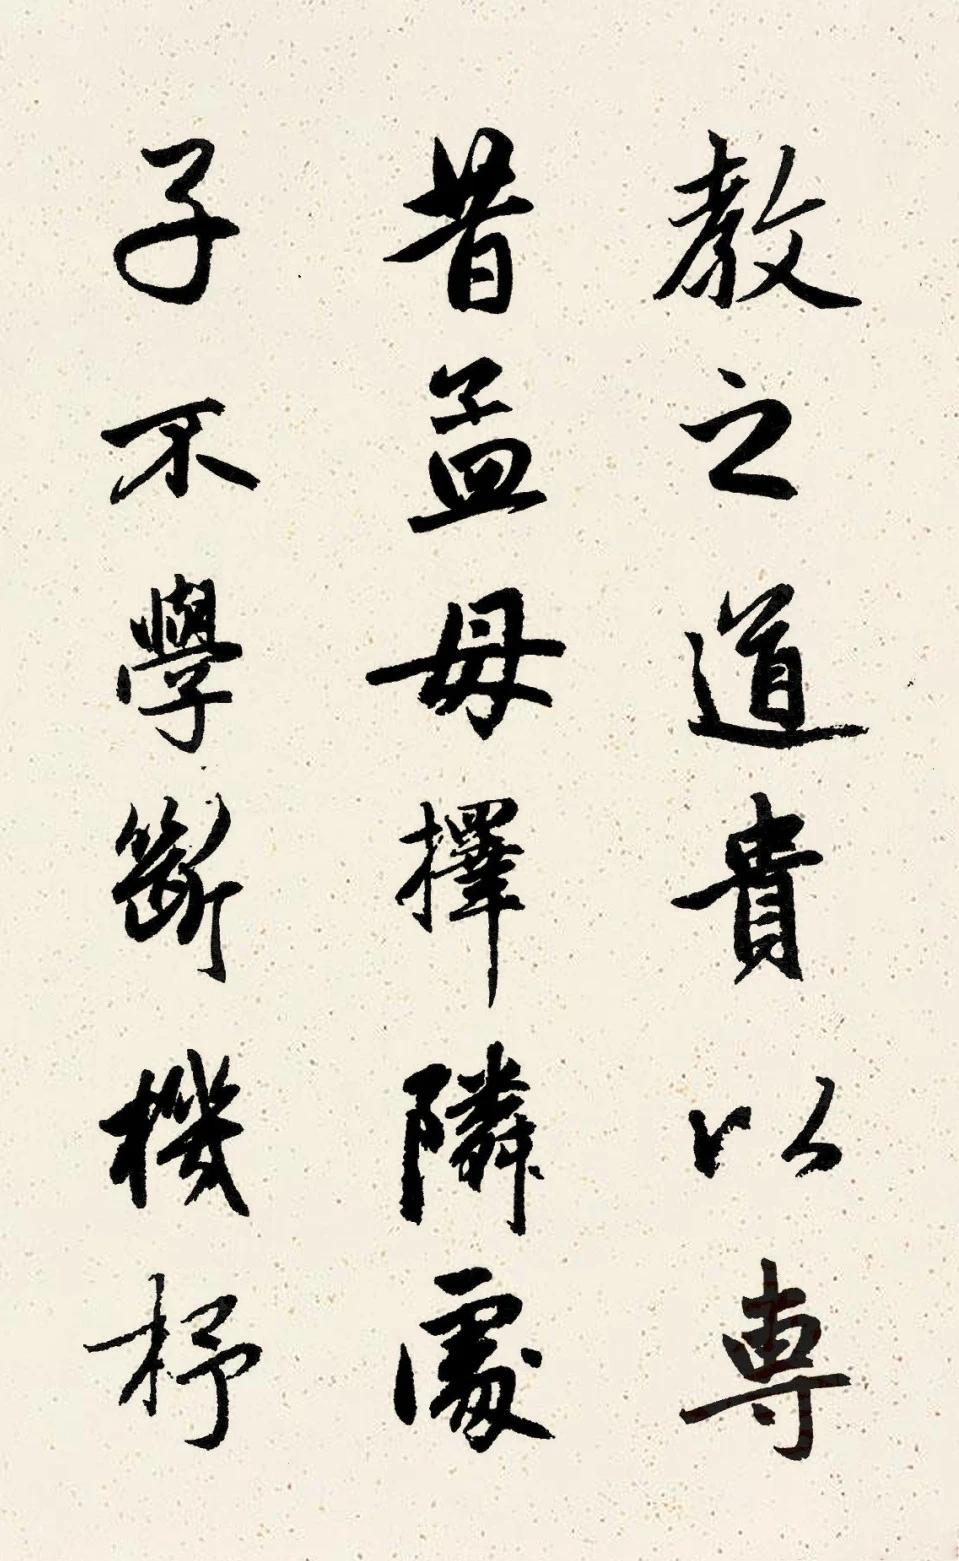 教之道貴以專
昔孟母擇隣處
子不學斷機杼